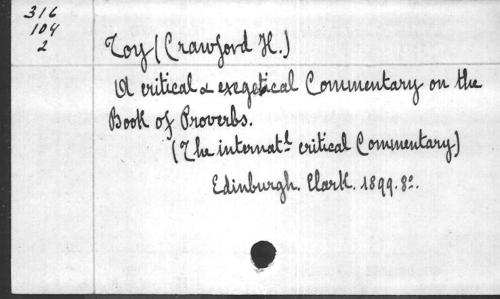 316
104
2
Toy (Crawford H.)
A critical & exegetical Commentary on the
Book of Proverbs.
(The internatl. critical Commentary)
Edinburgh. Clark. 1899. 8o.